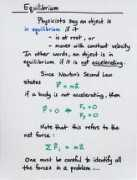 Equilibrium
Physicists say an object is
in equilibrium if it
- is at rest, or
- moves with constant velocity
In other words, an object is in
equilibrium if it is not accelerating.
Since Newton's Second Law
states
F = ma
if a body is not accelerating, then
F = 0 ⇔ Fx = 0
Fy = 0
Note that this refers to the
net force:
Σ Fi = ma
One must be careful to identify all
the forces in a problem ...